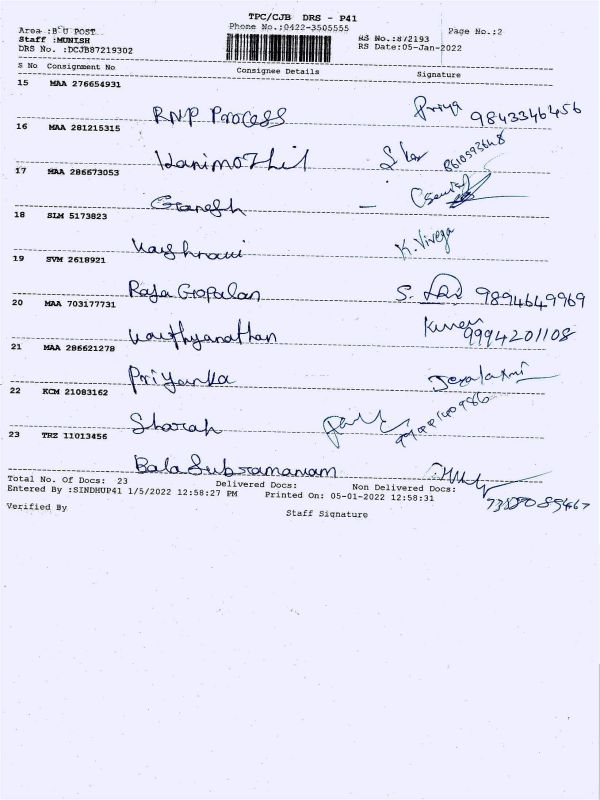 TPC/CJB DRS - P41
Phone No.:0422-3505555
Area :B U POST
Staff :MUNISH
DRS No. :DCJB87219302
RS No.:872193
RS Date:05-Jan-2022
Page No.:2
S No Consignment No Consignee Details Signature
15 MAA 276654931
RNP Process Priya 9843346456
16 MAA 281215315
Kanimozhil
17 MAA 286673053
Ganesh -
18 SLM 5173823
Vaishnavi K. Vivega
19 SVM 2618921
Raja Gopalan S. 9894649969
20 MAA 703177731
Vaithyanathan 9994201108
21 MAA 286621278
Priyanka Jeyalaxmi
22 KCM 21083162
Sharah
23 TRZ 11013456
Bala Subramaniam
Total No. Of Docs: 23 Delivered Docs: Non Delivered Docs:
Entered By :SINDHUP41 1/5/2022 12:58:27 PM Printed On: 05-01-2022 12:58:31
Verified By Staff Signature